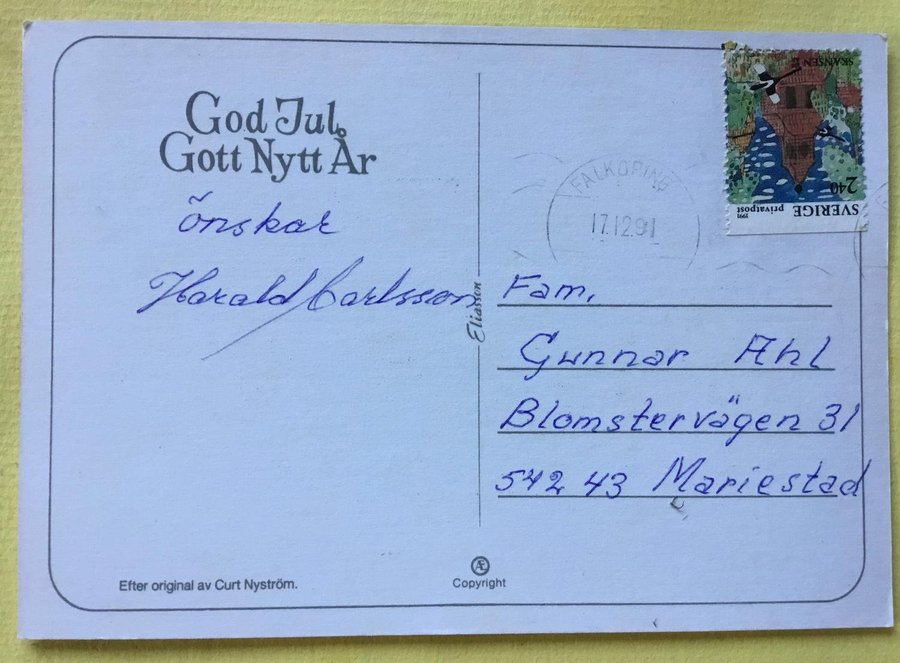 God Jul
Gott Nytt År
önskar
Harald Carlsson
Efter original av Curt Nyström.
Eliasson
Æ
Copyright
SKANSEN
2.40
SVERIGE
privatpost
1991
FALKÖPING
17.12.91
Fam.
Gunnar Ahl
Blomstervägen 31
542 43 Mariestad